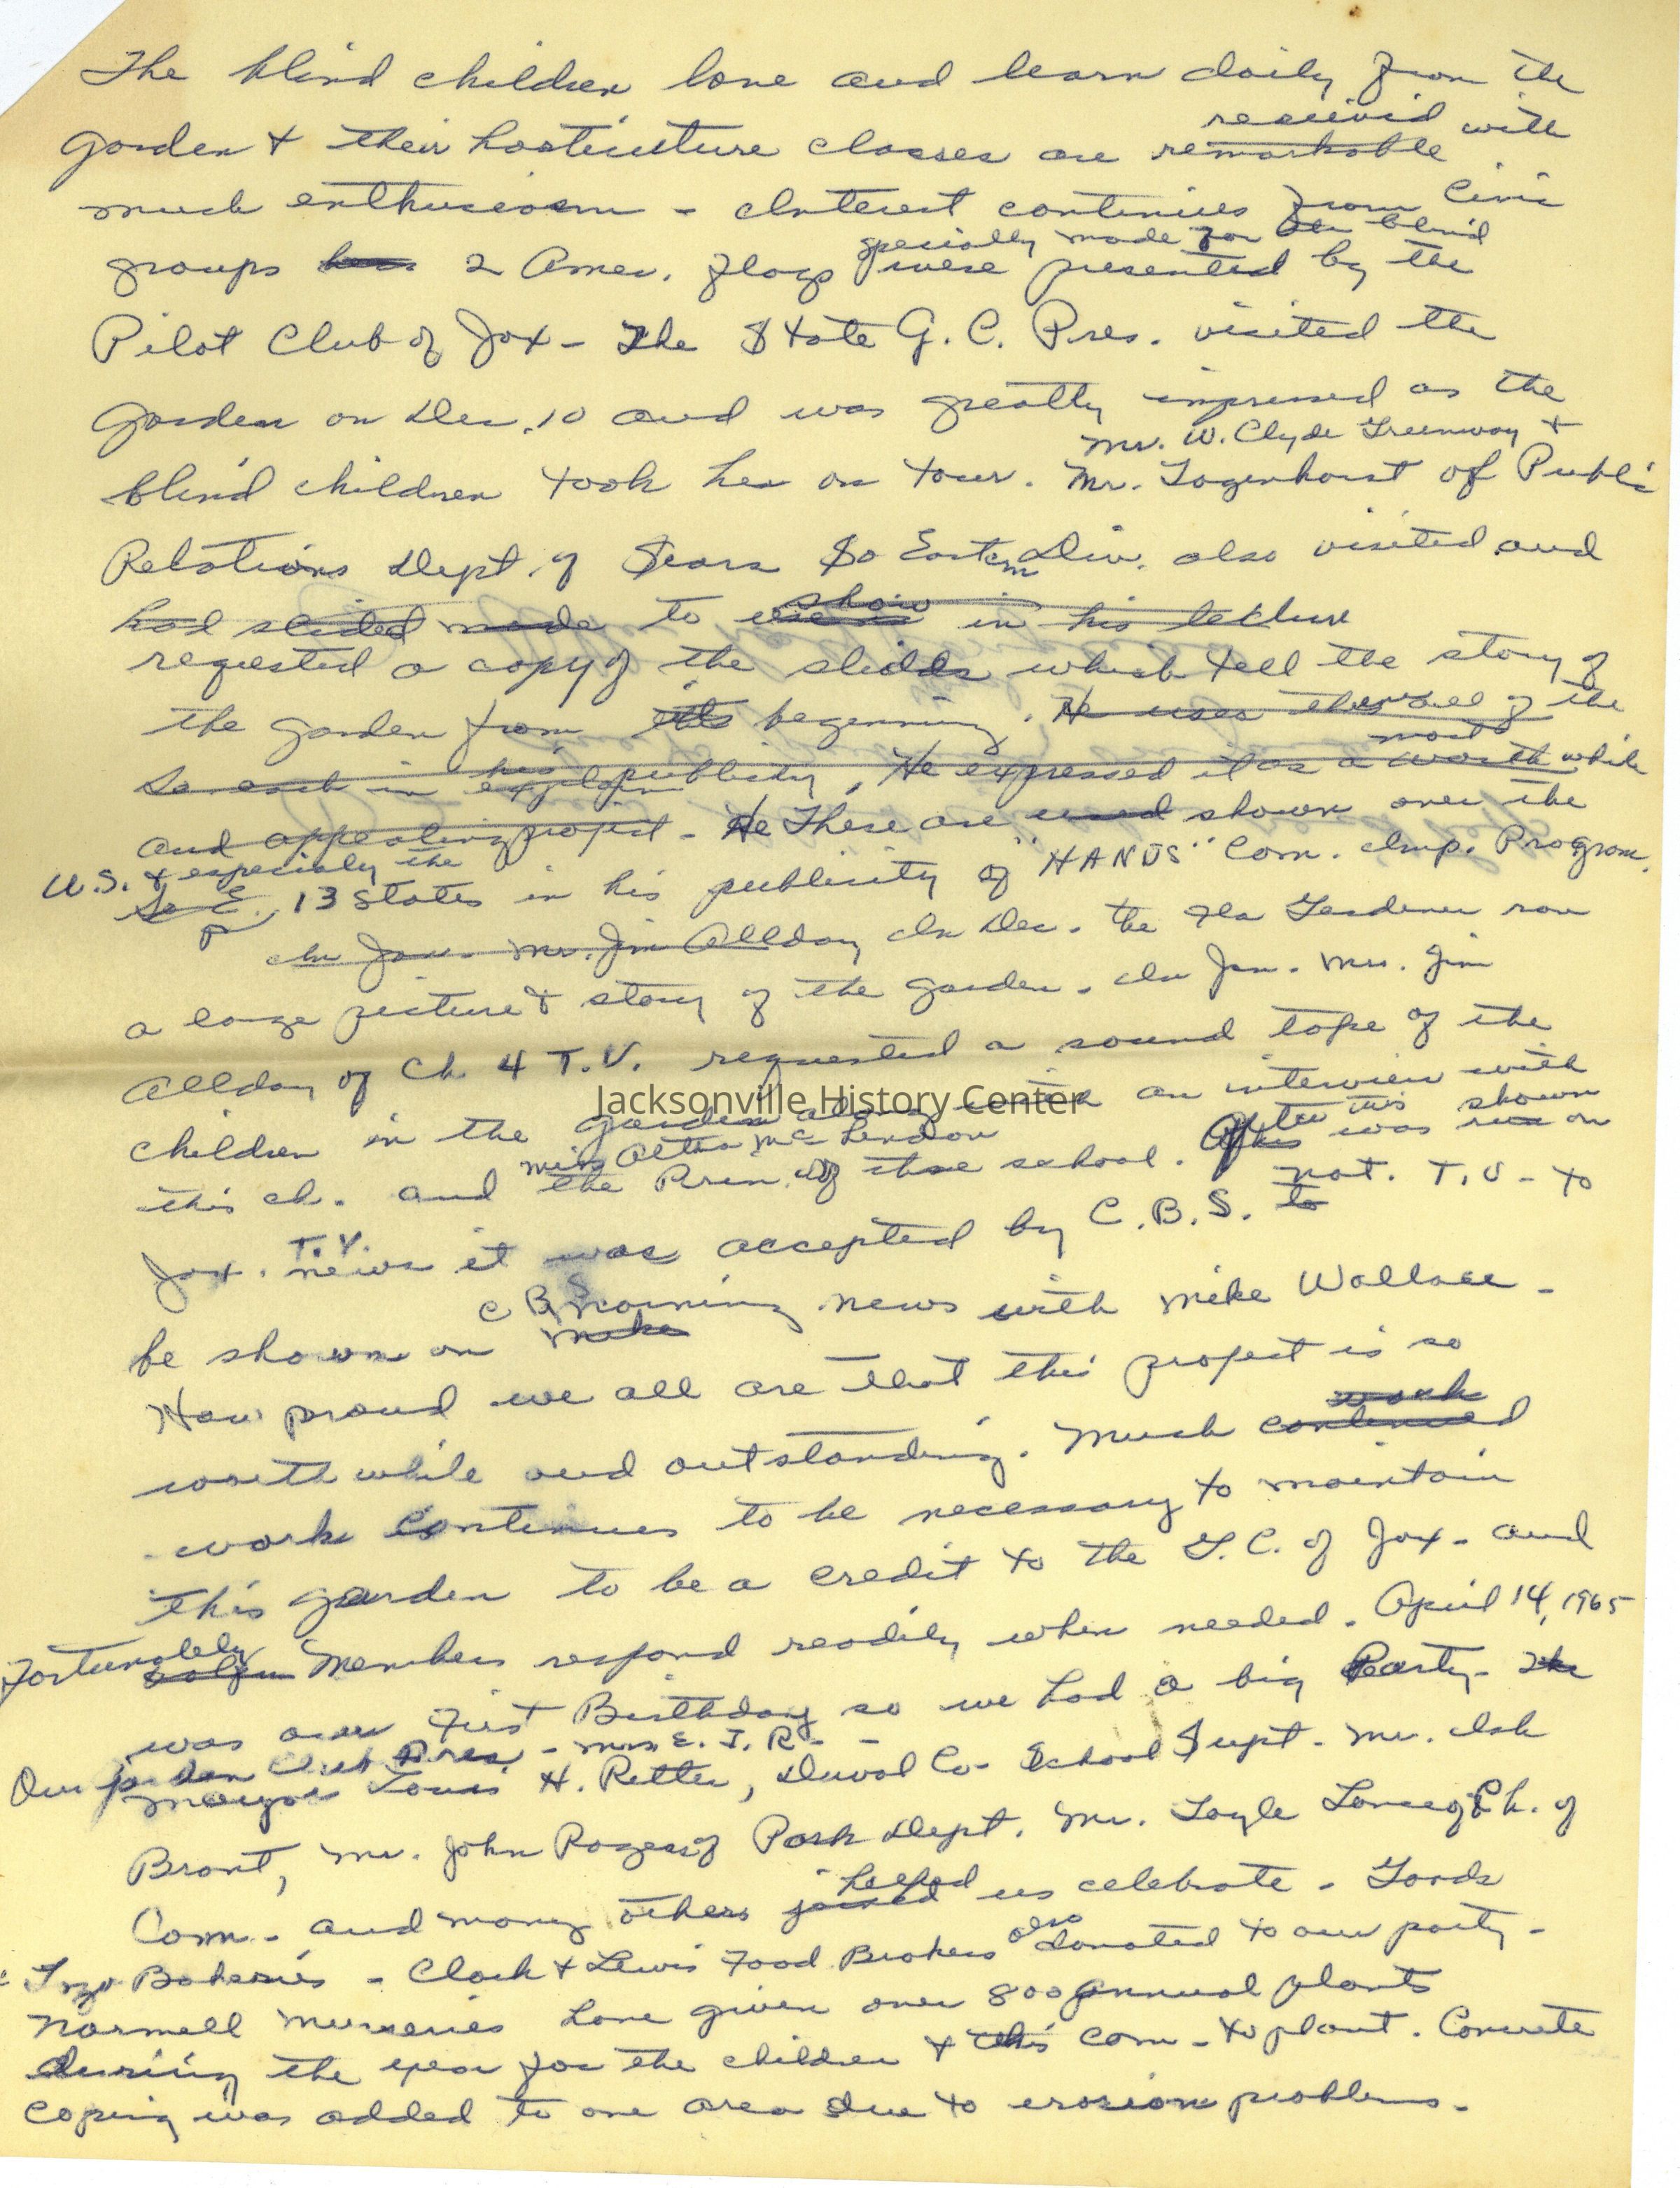 The blind children love and learn daily from the
received with
garden & their horticulture classes are remarkable
much enthusiasm - Interest continues from Civic
specially made for the blind
groups has 2 Amer. flags were presented by the
Pilot Club of Jax - The State G. C. Pres. visited the
garden on Dec. 10 and was greatly impressed as the
Mr. W. Clyde Greenway &
blind children took her on tour. Mr. of Public
Relations Dept. of Sears So Eastern Div. also visited and
show
had slided made to use in his lecture
requested a copy of the slides which tell the story of
the garden from its beginning. He uses these all of the
most
So east in his publicity. He expressed it as a worth while
and appealing project - He These are used shown over the
U.S. & especially the
So E. 13 States in his publicity of "HANDS" Com. Imp. Program.
In Jan. Mr. Jim Allday In Dec. the Fla Gardener ran
a large picture & story of the garden. In Jan. Mr. Jim
Allday of Ch. 4 T.V. requested a sound tape of the
Jacksonville History Center
children in the garden along with an interview with
Miss Aletha McLendon After this shown
this ch. and the Prin. of the school. was run on
nat. T.V - to
Jax. T.V. news it was accepted by C.B.S. to
C B S morning news with Mike Wallace -
be shown on Mike
How proud we all are that this project is so
work
worth while and outstanding. Much continued
work continues to be necessary to maintain
this garden to be a credit to the G.C. of Jax - and
Fortunately Members respond readily when needed. April 14, 1965
was our First Birthday so we had a big Party - The
Our garden Club Pres - Mrs E. I. R. -
Mayor Louis H. Ritter, Duval Co - School Supt. Mr. Ish
Brant, Mr. John Rogers of Park Dept. Mr. Ch. of
helped
Com. - and many others joined us celebrate -
also
Bakeries - Clark & Lewis Food Brokers donated to our party -
Normell Nurseries have given over 800 annual plants
during the year for the children & this com - to plant. Concrete
coping was added to one area due to erosion problems.